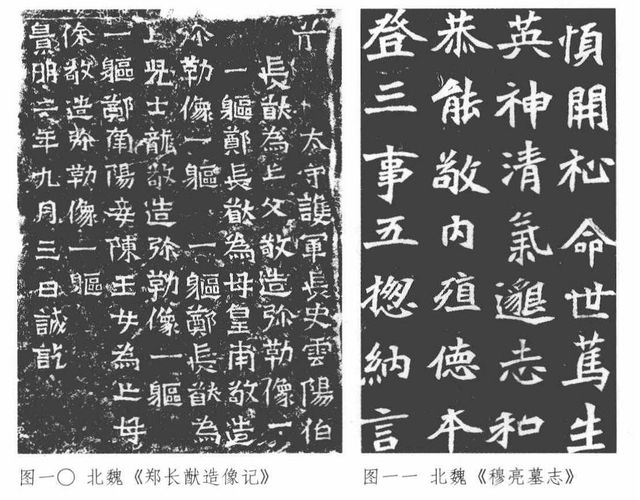 太守護軍長史雲陽伯
長猷為亡父敬造弥勒像一
一軀鄭長猷為母皇甫敬造
弥勒像一軀 一軀鄭長猷為
亡兒士龍敬造弥勒像一軀
一軀鄭南陽妾陳玉女為亡母
徐敬造弥勒像一軀
景明二年九月三日誠訖
開 命世篤生
英神清氣邈志和
恭能敬内殖德本
登三事五揔納言
图一〇 北魏《郑长猷造像记》
图一一 北魏《穆亮墓志》